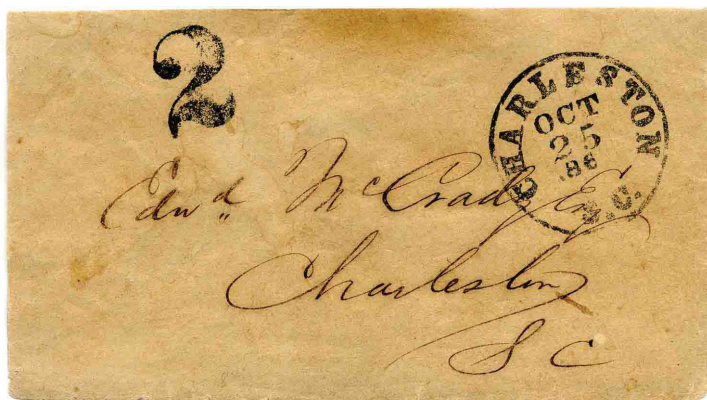 2
CHARLESTON
OCT
25
186
S.C.
Edwd McCrady Esq
Charleston
S C